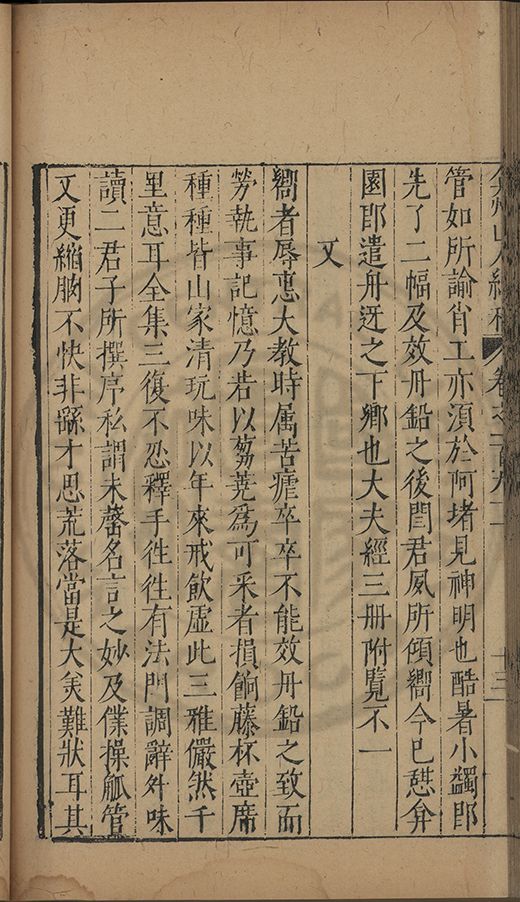 弇州山人續稿 卷之一百九二 十三
管如所諭肖工亦須於阿堵見神明也酷暑小蠲即
先了二幅及效丹鉛之後閆君夙所傾嚮今已趣弇
園郎遣舟迓之下鄉也大夫經三册附覽不一
又
嚮者辱惠大教時属苦瘧卒卒不能效丹鉛之致而
勞執事記憶乃若以芻蕘爲可采者損餉藤杯壺席
種種皆山家清玩味以年來戒飲虛此三雅儼然千
里意耳全集三復不忍釋手徃徃有法門調辭外味
讀二君子所撰序私謂未罄名言之妙及僕操觚管
又更縮朒不快非繇才思荒落當是大美難狀耳其